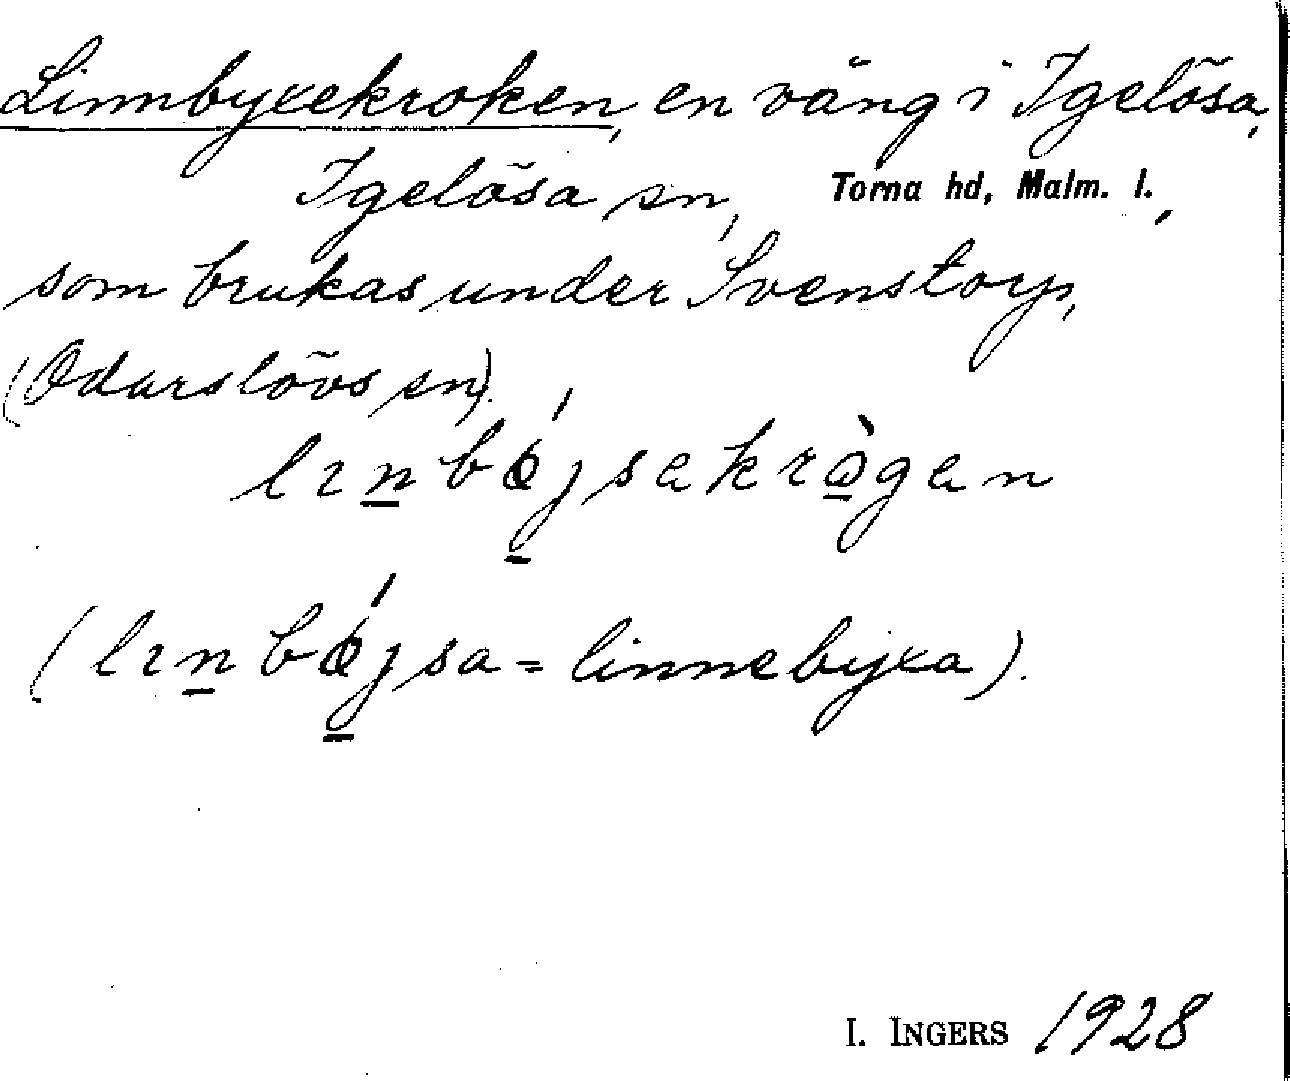 Linnbyxekroken, en väng i Igelösa,
Igelösa sn, Torna hd, Malm. l.,
som brukas under Svenstorp,
(Odarslövs sn).
lɪn̲bǿ̲jsakrò̲gan
(lɪn̲bǿ̲jsa = linnebyxa).
I. INGERS 1928